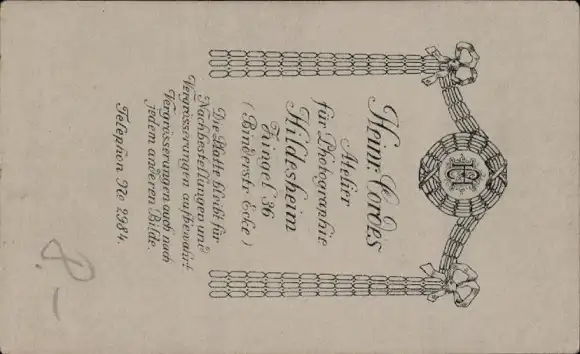 HC
Heinr. Cordes
Atelier
für Photographie
Hildesheim
Zingel 36
(Binderstr. Ecke)
Die Platte bleibt für
Nachbestellungen und
Vergrösserungen aufbewahrt
Vergrösserungen auch nach
jedem anderen Bilde.
Telephon No 2984.
8.-